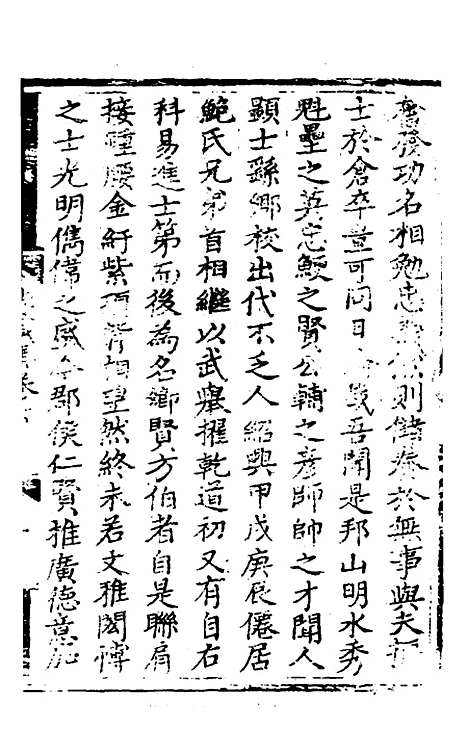 奮發功名相勉忠義然則儲養於無事與夫
士於倉卒量可同日哉吾聞是邦山明水秀
魁壘之英忠鯁之賢公輔之彥師帥之才聞人
顯士繇鄉校出代不乏人紹興甲戌庚辰僊居
鮑氏兄弟首相繼以武舉擢乾道初又有自右
科易進士第而後為名鄉賢方伯者自是聯肩
接踵腰金紆紫項背相望然終未若文雅閎博
之士光明儁偉之盛今郡侯仁賢推廣德意加